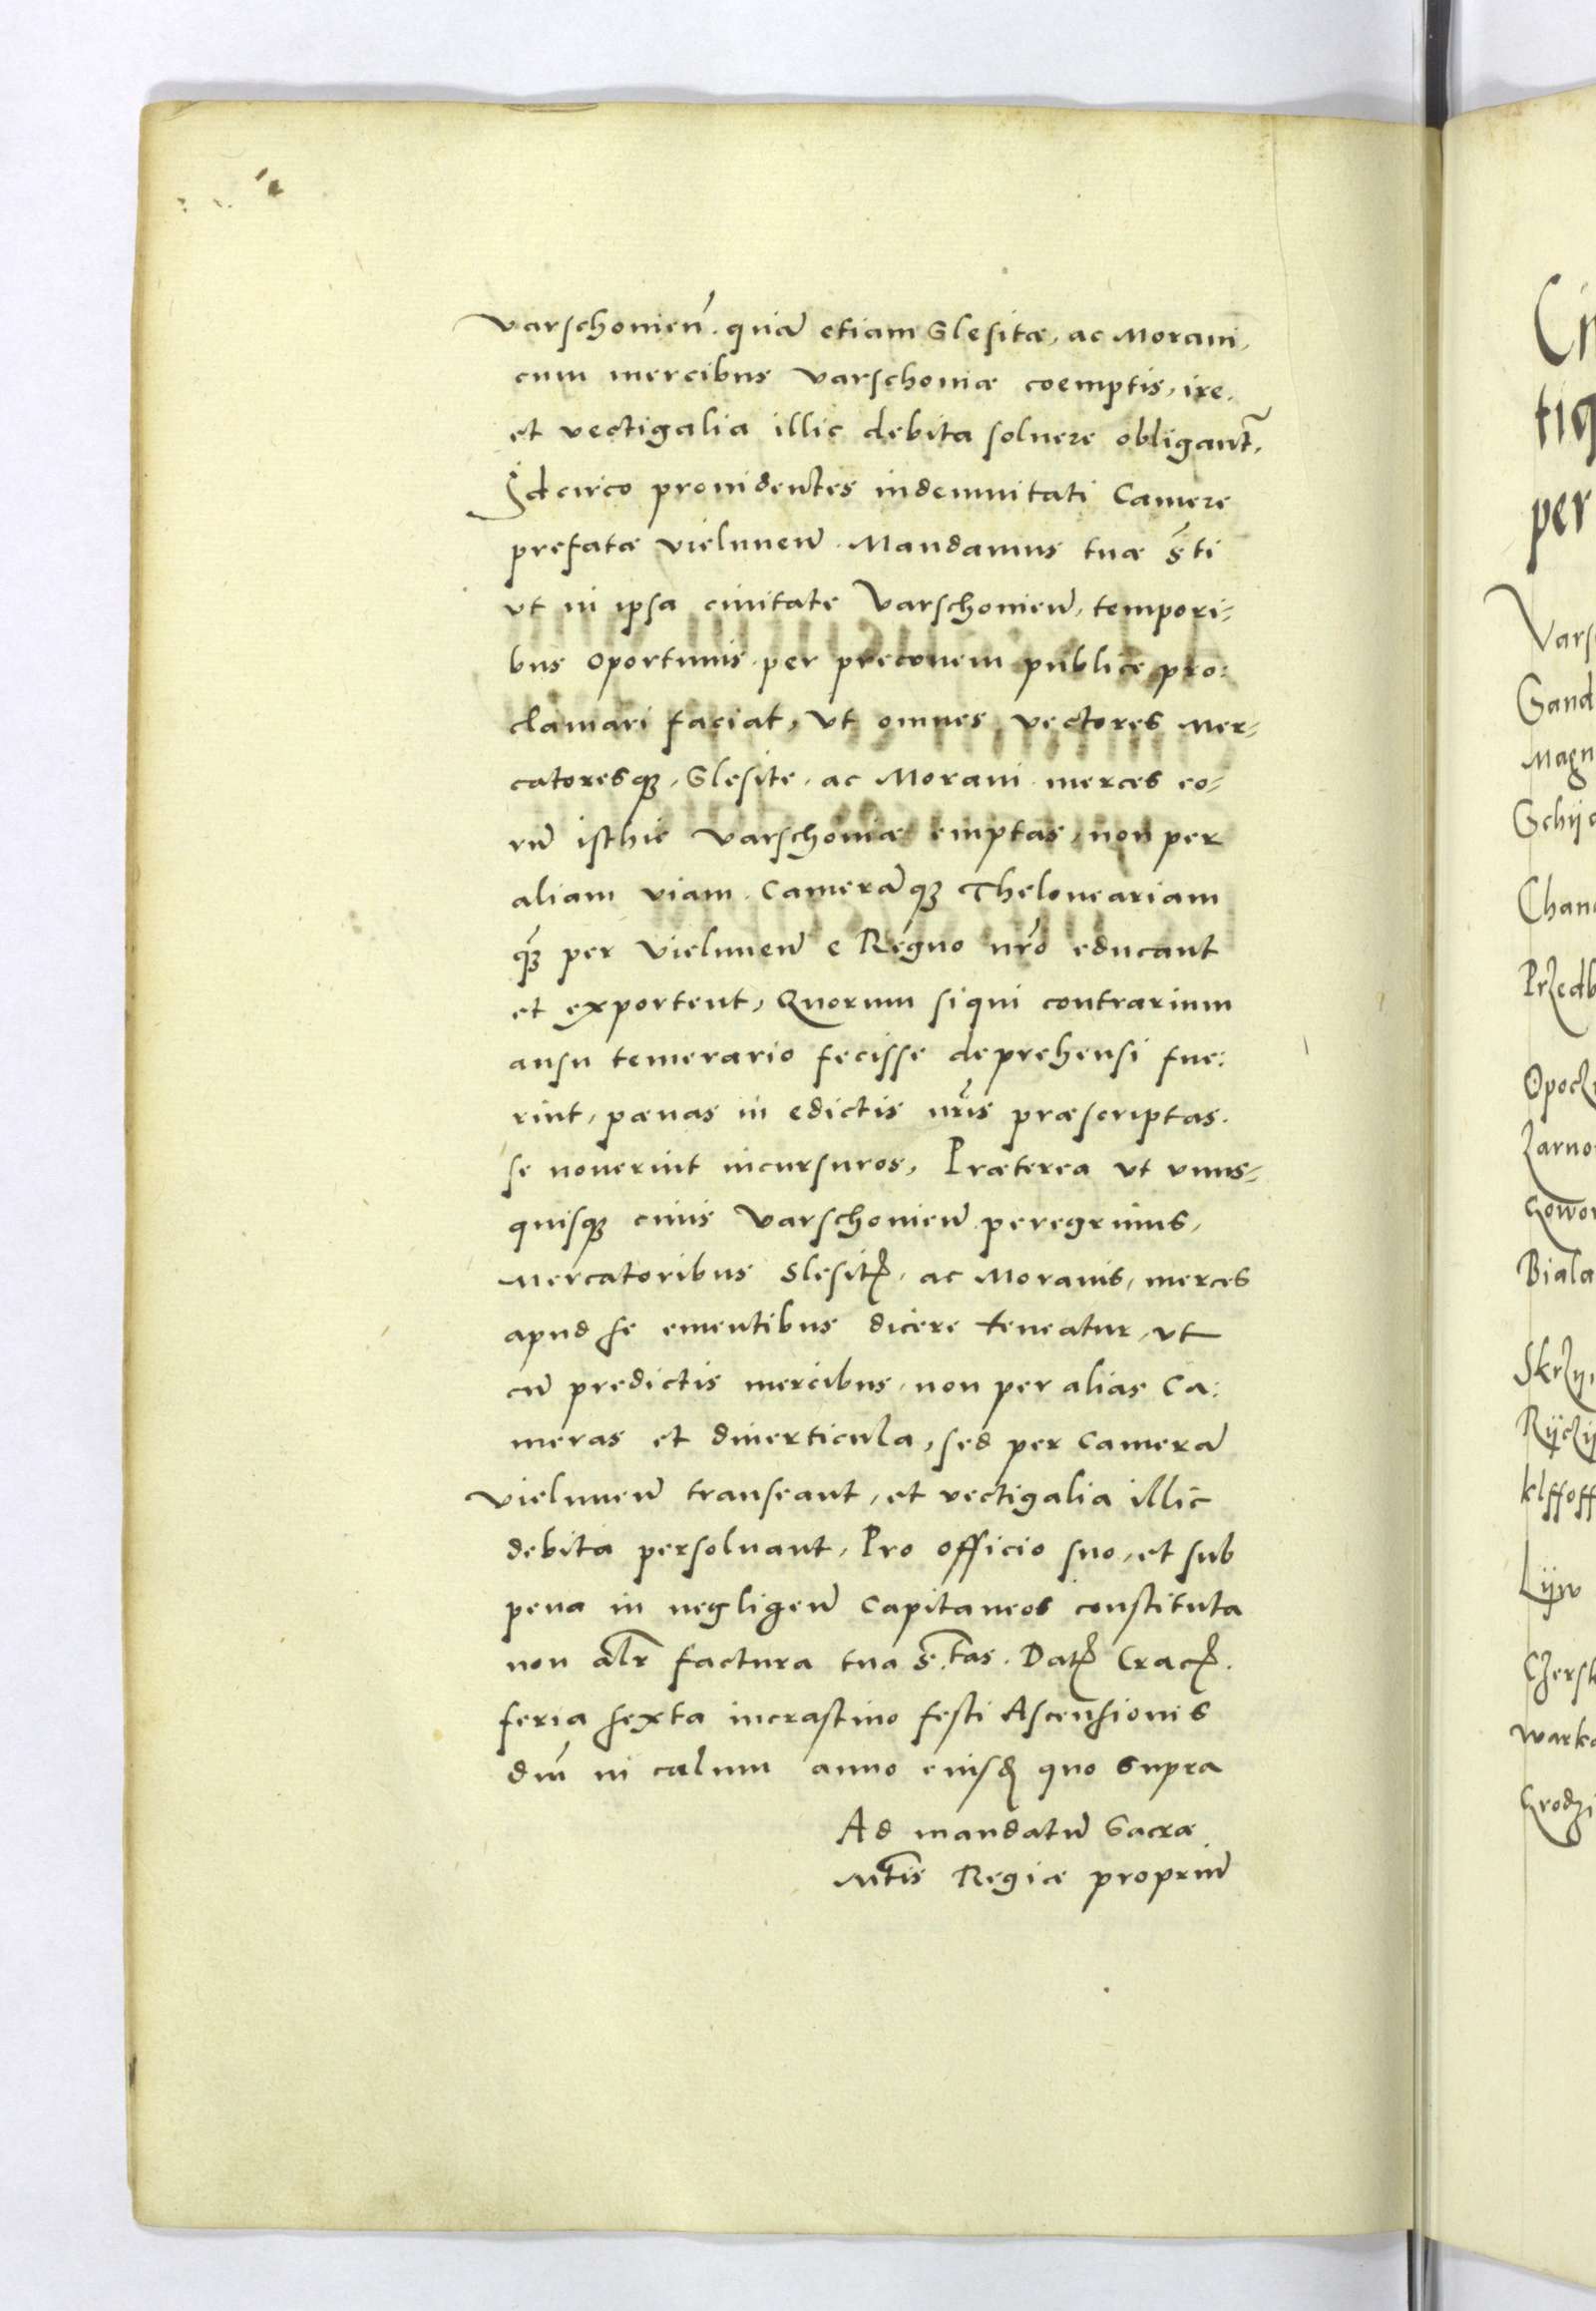 varschonien̄. quā etiam Slesitæ, ac Moraui,
cum mercibus varschoniæ coemptis, ire,
et vectigalia illic debita soluere obligant̄,
Idcirco prouidentes indemnitati Camere
prefatæ vielunen̄. Mandamus tuæ S̄ti
vt in ipsa ciuitate Varschonien̄, tempori=
bus oportunis per preconem publice pro:
clamari faciat, vt omnes vectores Mer=
catoresqȝ, Slesite, ac Moraui merces eo=
rū isthic varschoniæ emptas, non per
aliam viam Camerāqȝ Theloneariam
qȝ̄ per vielunen̄ e Regno nr̄o educant
et exportent, Quorum siqui contrarium
ausu temerario fecisse deprehensi fue:
rint, pænas in edictis nr̄is præscriptas.
se nouerint incursuros, Præterea vt vnus=
quisqȝ ciuis varschonien̄ peregrinis,
Mercatoribus Slesitꝭ, ac Morauis, merces
apud se ementibus dicere teneatur, vt
cū predictis mercibus, non per alias Ca:
meras et diuerticula, sed per Camerā
vielunen̄ transeant, et vectigalia illic
debita persoluant, Pro officio suo, et sub
pena in negligen̄ Capitaneos constituta
non al̄r factura tua S.tas. Datꝭ Cracꝭ.
feria sexta incrastino festi Ascensionis
dnī in cælum anno eiusdꝭ quo supra
Ad mandatū Sacræ
Mt̄is Regiæ propriū
per
Vars
Sand
Magn
Przedb
Biala
Lijw
Czersk